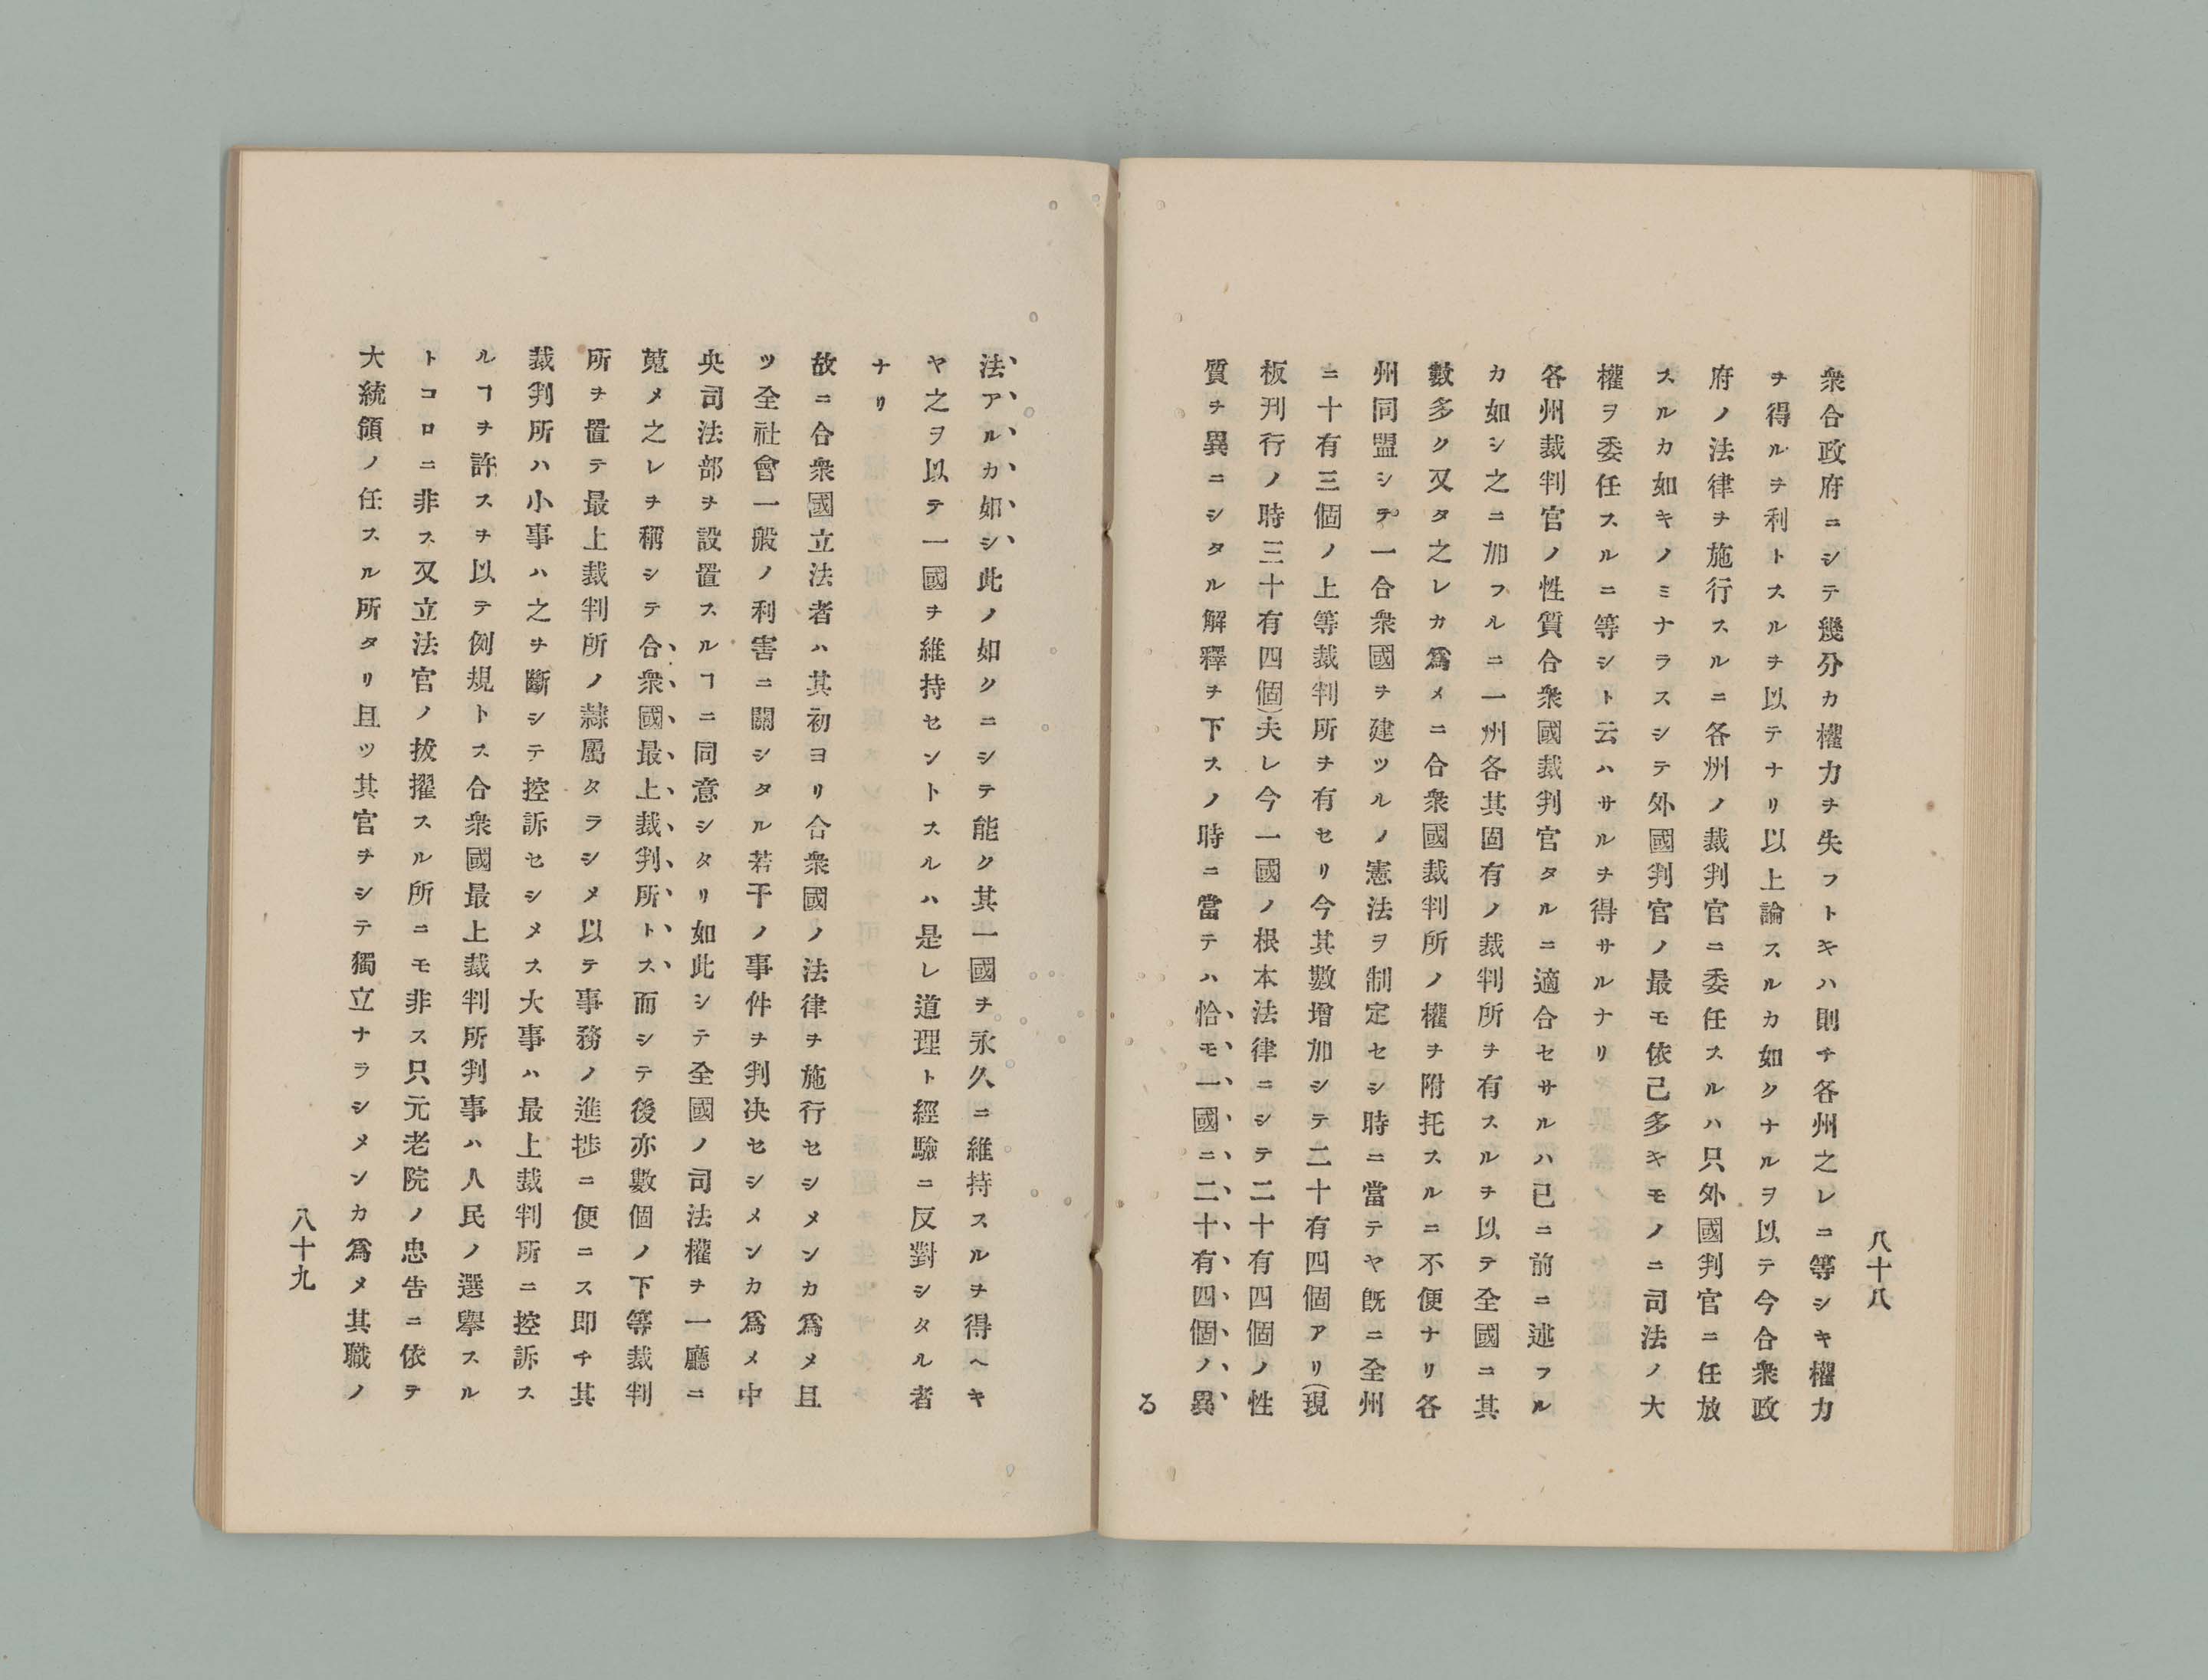 八十八
衆合政府ニシテ幾分カ權力ヲ失フトキハ則チ各州之レニ等シキ權力
ヲ得ルヲ利トスルヲ以テナリ以上論スルカ如クナルヲ以テ今合衆政
府ノ法律ヲ施行スルニ各州ノ裁判官ニ委任スルハ只外國判官ニ任放
スルカ如キノミナラスシテ外國判官ノ最モ依己多キモノニ司法ノ大
權ヲ委任スルニ等シト云ハサルヲ得サルナリ
各州裁判官ノ性質合衆國裁判官タルニ適合セサルハ已ニ前ニ述フル
カ如シ之ニ加フルニ一州各其固有ノ裁判所ヲ有スルヲ以テ全國ニ其
數多ク又タ之レカ爲メニ合衆國裁判所ノ權ヲ附托スルニ不便ナリ各
州同盟シテ一合衆國ヲ建ツルノ憲法ヲ制定セシ時ニ當テヤ旣ニ全州
ニ十有三個ノ上等裁判所ヲ有セリ今其數增加シテ二十有四個アリ(現
板刋行ノ時三十有四個)夫レ今一國ノ根本法律ニシテ二十有四個ノ性
質ヲ異ニシタル解釋ヲ下スノ時ニ當テハ恰モ一國ニ二十有四個ノ異
る
法アルカ如シ此ノ如クニシテ能ク其一國ヲ永久ニ維持スルヲ得ヘキ
ヤ之ヲ以テ一國ヲ維持セントスルハ是レ道理ト經驗ニ反對シタル者
ナリ
故ニ合衆國立法者ハ其初ヨリ合衆國ノ法律ヲ施行セシメンカ爲メ且
ツ全社會一般ノ利害ニ關シタル若干ノ事件ヲ判决セシメンカ爲メ中
央司法部ヲ設置スルヿニ同意シタリ如此シテ全國ノ司法權ヲ一廳ニ
蒐メ之レヲ稱シテ合衆國最上裁判所トス而シテ後亦數個ノ下等裁判
所ヲ置テ最上裁判所ノ隷屬タラシメ以テ事務ノ進捗ニ便ニス即チ其
裁判所ハ小事ハ之ヲ斷シテ控訴セシメス大事ハ最上裁判所ニ控訴ス
ルヿヲ許スヲ以テ例規トス合衆國最上裁判所判事ハ人民ノ選擧スル
トコロニ非ス又立法官ノ拔擢スル所ニモ非ス只元老院ノ忠告ニ依テ
大統領ノ任スル所タリ且ツ其官ヲシテ獨立ナラシメンカ爲メ其職ノ
八十九